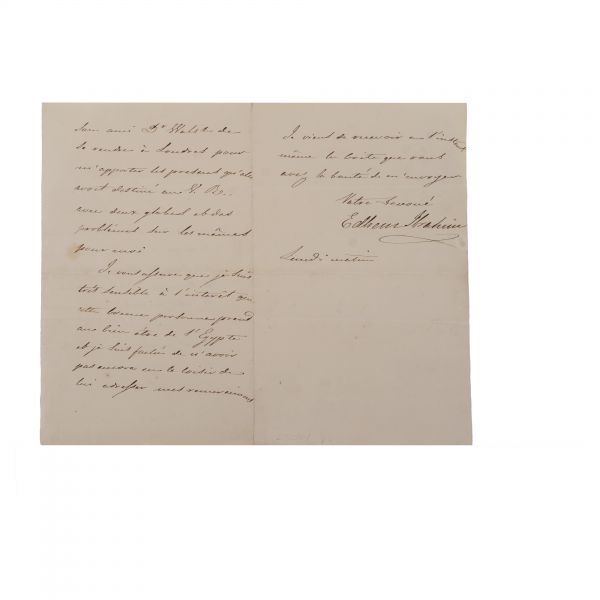 son ami Dr Walsh de
se rendre à Londres pour
m'apporter les présent qu'elle
avoit destiné au
avec deux globes et des
problèmes sur les mêmes
pour moi
Je vous assure que je suis
très sensible à l'interêt que
cette bonne personne prend
au bien être de l'Egypte
et je suis fachée de n'avoir
pas encore eu le loisir de
lui adresser mes remerciemens
Je vient de recevoir à l'instant
même la boîte que vous
avez la bonté de m'envoyer
Votre devoué
Edhem
Lundi matin